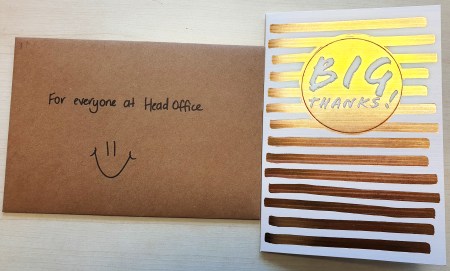 For everyone at Head Office
BIG
THANKS!